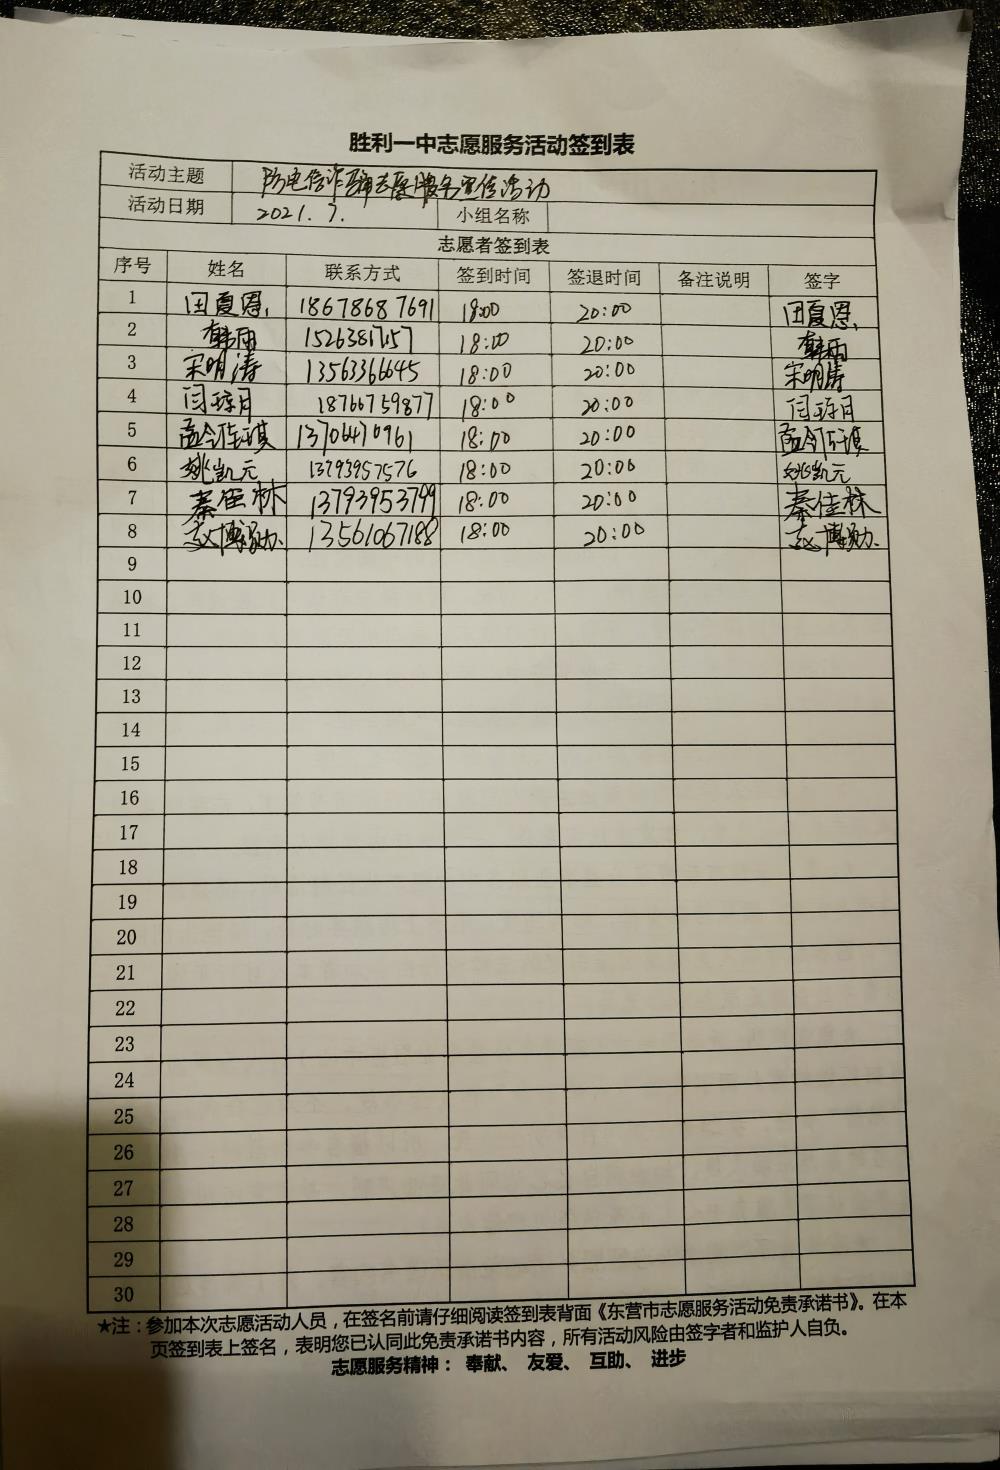 胜利一中志愿服务活动签到表
活动主题 防电信诈骗志愿服务宣传活动
活动日期 2021.7. 小组名称
志愿者签到表
序号 姓名 联系方式 签到时间 签退时间 备注说明 签字
1 田夏恩 18678687691 18:00 20:00 田夏恩
2 韩雨 18:00 20:00 韩雨
3 宋明涛 13563366645 18:00 20:00 宋明涛
4 闫琼月 18766759877 18:00 20:00 闫琼月
5 孟令佳琪 13706470961 18:00 20:00 孟令佳琪
6 姚凯元 13793957576 18:00 20:00 姚凯元
7 秦佳林 13793953799 18:00 20:00 秦佳林
8 赵博勋 13561067188 18:00 20:00 赵博勋
9
10
11
12
13
14
15
16
17
18
19
20
21
22
23
24
25
26
27
28
29
30
★注：参加本次志愿活动人员，在签名前请仔细阅读签到表背面《东营市志愿服务活动免责承诺书》。在本
页签到表上签名，表明您已认同此免责承诺书内容，所有活动风险由签字者和监护人自负。
志愿服务精神： 奉献、 友爱、 互助、 进步